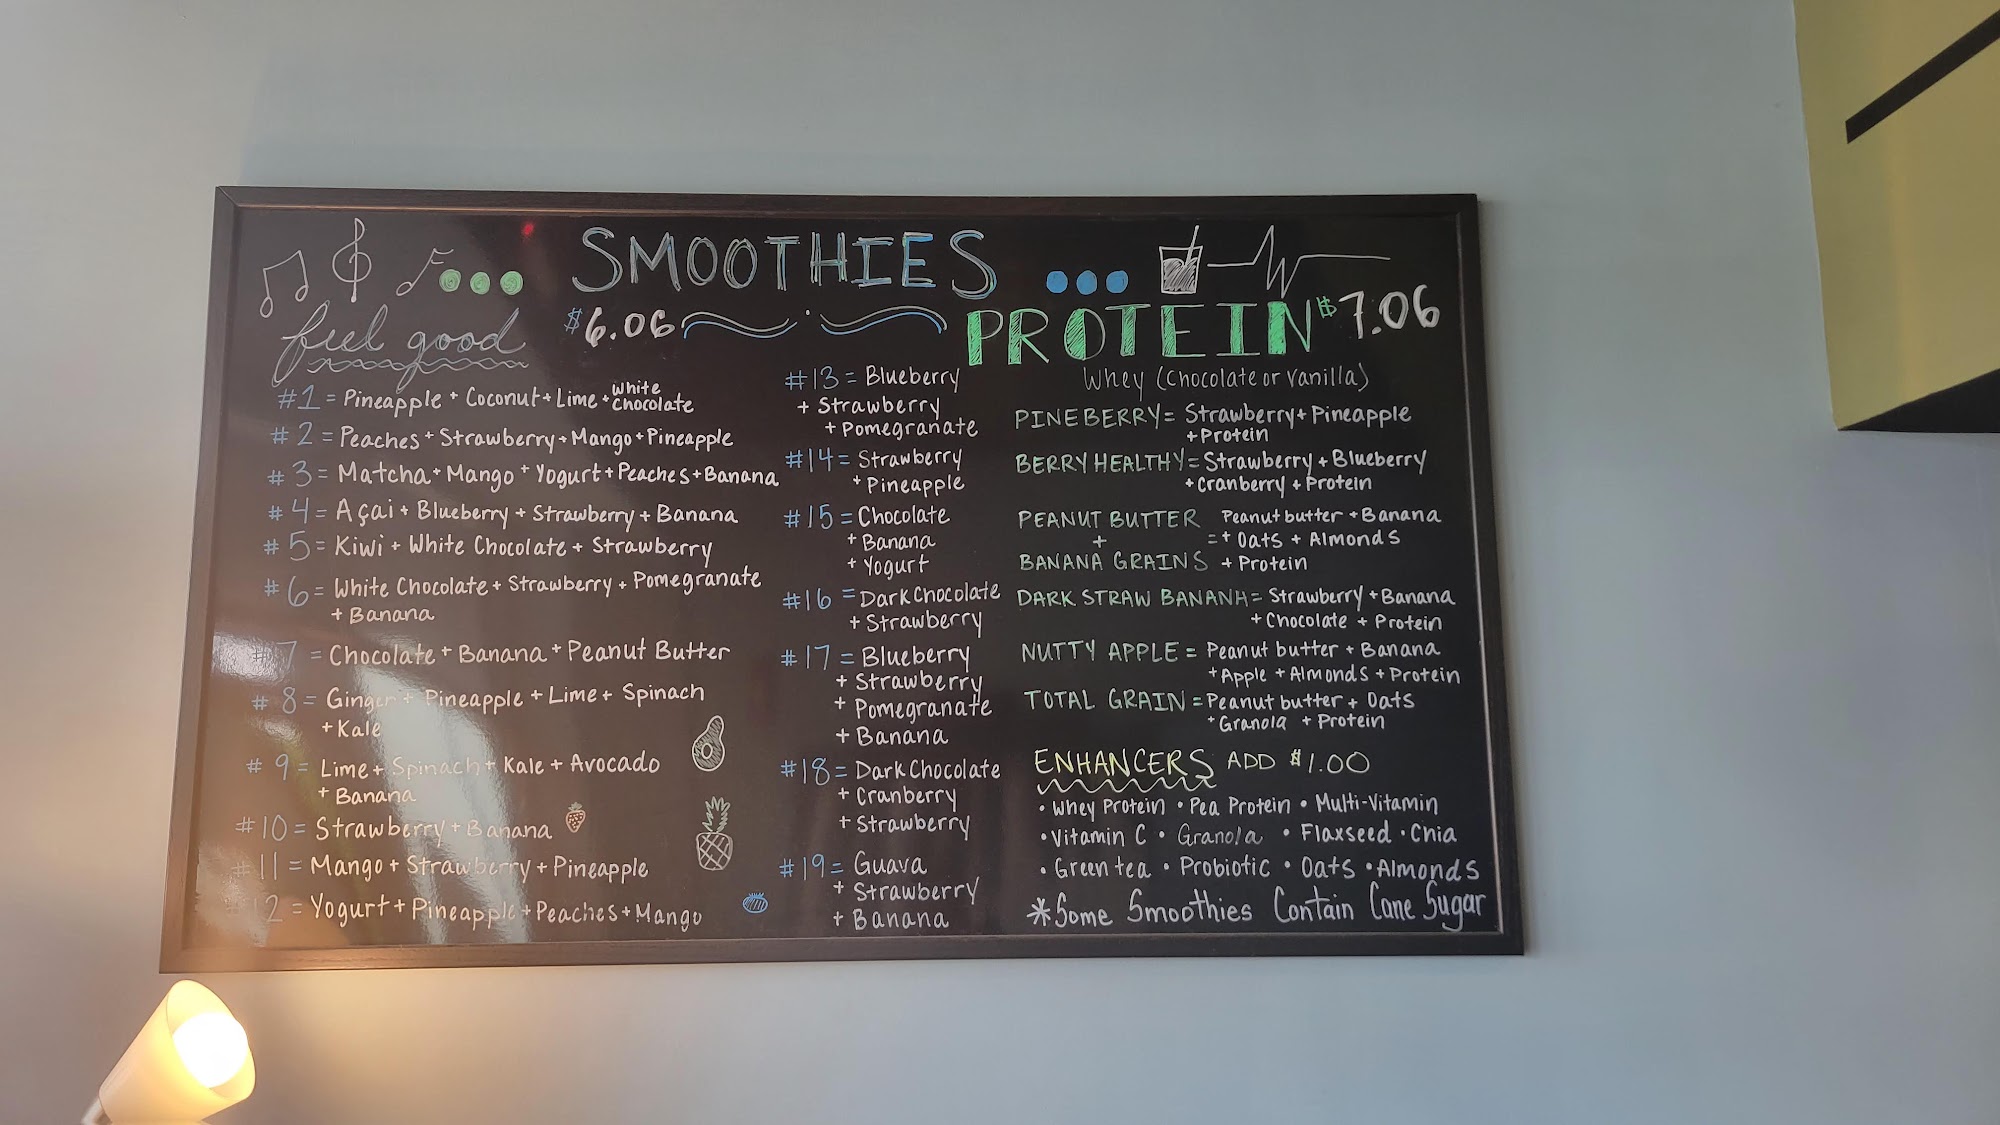 SMOOTHIES
feel good
$6.06
#1 = Pineapple + Coconut + Lime + White Chocolate
#2 = Peaches + Strawberry + Mango + Pineapple
#3 = Matcha + Mango + Yogurt + Peaches + Banana
#4 = Açai + Blueberry + Strawberry + Banana
#5 = Kiwi + White Chocolate + Strawberry
#6 = White Chocolate + Strawberry + Pomegranate
+ Banana
#7 = Chocolate + Banana + Peanut Butter
#8 = Ginger + Pineapple + Lime + Spinach
+ Kale
#9 = Lime + Spinach + Kale + Avocado
+ Banana
#10 = Strawberry + Banana
#11 = Mango + Strawberry + Pineapple
#12 = Yogurt + Pineapple + Peaches + Mango
#13 = Blueberry
+ Strawberry
+ Pomegranate
#14 = Strawberry
+ Pineapple
#15 = Chocolate
+ Banana
+ Yogurt
#16 = Dark Chocolate
+ Strawberry
#17 = Blueberry
+ Strawberry
+ Pomegranate
+ Banana
#18 = Dark Chocolate
+ Cranberry
+ Strawberry
#19 = Guava
+ Strawberry
+ Banana
PROTEIN $7.06
Whey (Chocolate or Vanilla)
PINEBERRY = Strawberry + Pineapple
+ Protein
BERRY HEALTHY = Strawberry + Blueberry
+ Cranberry + Protein
PEANUT BUTTER Peanut butter + Banana
+ = + Oats + Almonds
BANANA GRAINS + Protein
DARK STRAW BANANH = Strawberry + Banana
+ Chocolate + Protein
NUTTY APPLE = Peanut butter + Banana
+ Apple + Almonds + Protein
TOTAL GRAIN = Peanut butter + Oats
+ Granola + Protein
ENHANCERS ADD $1.00
• Whey Protein • Pea Protein • Multi-Vitamin
• Vitamin C • Granola • Flaxseed • Chia
• Green tea • Probiotic • Oats • Almonds
*Some Smoothies Contain Cane Sugar